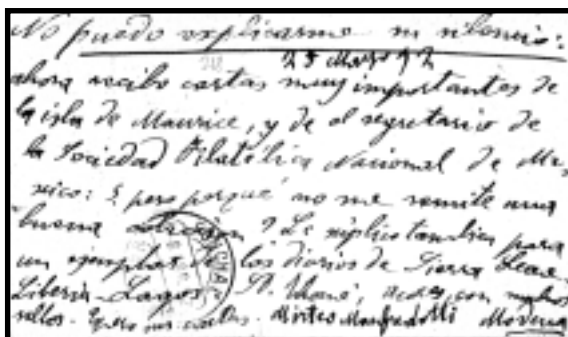 No puedo explicarme su silencio:
25 Marzo 92
ahora recibo cartas muy importantes de
la isla de Maurice, y de el segretario de
la Sociedad Filatélica Nacional de Me,
xico: ¿ pero porqué no me remite una
buena ? Le suplico tambien para
un ejemplar de los diarios de Sierra Leone
Liberia - Lagos - con muchos
sellos. Manfredotti Modena